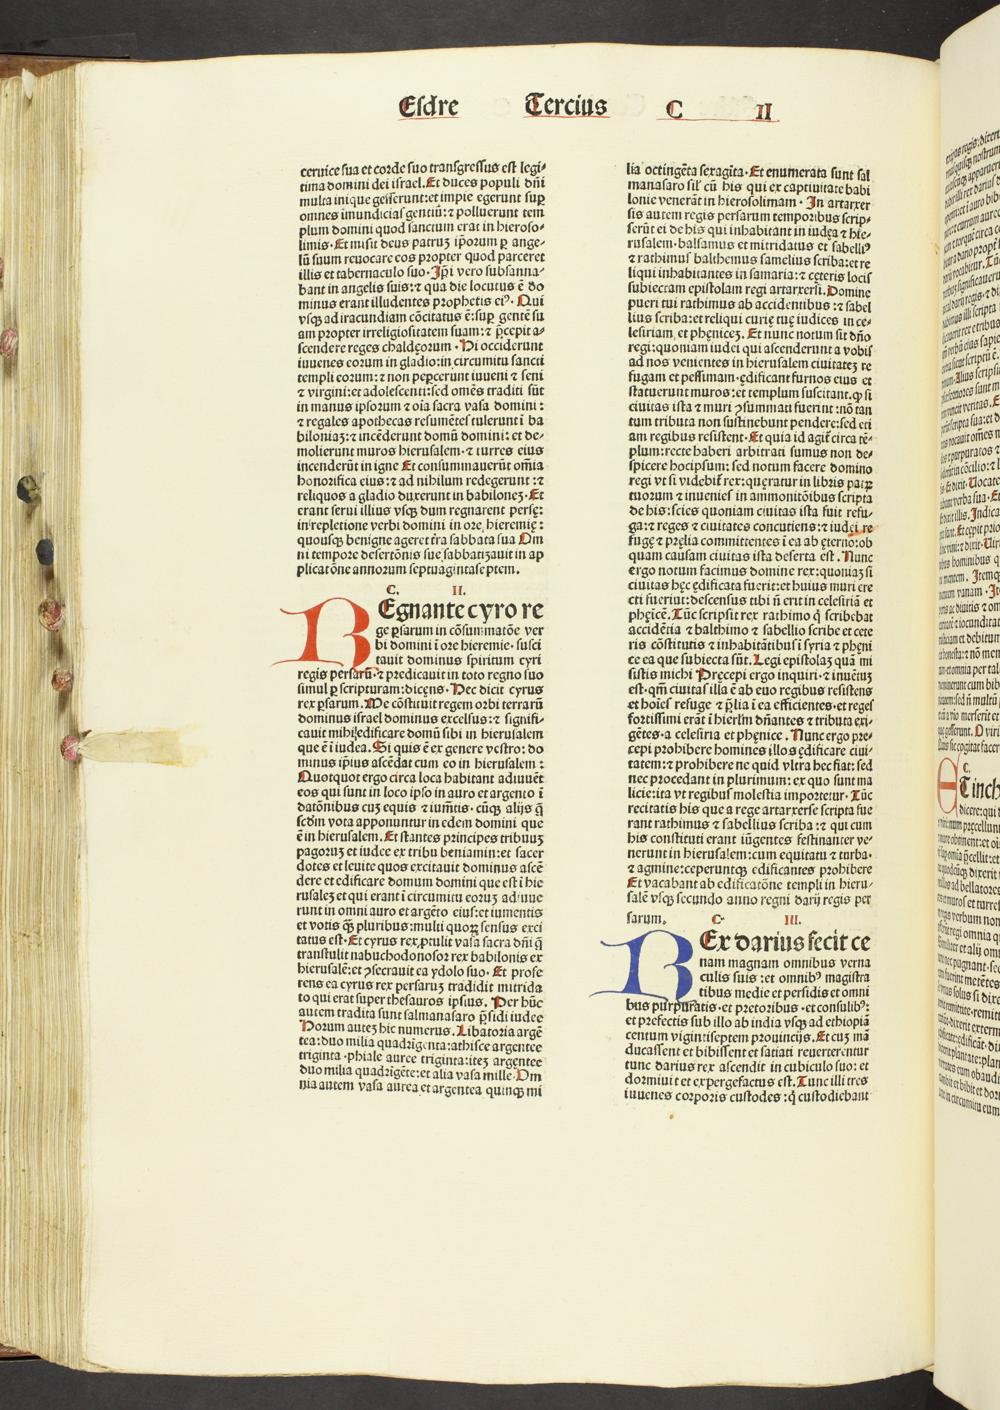 Esdre Tercius C II
ceruice sua et corde suo transgressus est legi⸗
tima domini dei israel. Et duces populi dñi
multa inique gesserunt: et impie egerunt suꝑ
omnes imundicias gentiũ: ⁊ polluerunt tem
plum domini quod sanctum erat in hieroso⸗
limis · Et misit deus patruʒ ip̃oruʒ ꝑ ange⸗
lũ suum reuocare eos propter quod parceret
illis et tabernaculo suo · Ip̃i vero subsanna⸗
bant in angelis suis: ⁊ qua die locutus ẽ do
minus erant illudentes prophetis eiꝰ · Qui
vsqʒ ad iracundiam cõcitatus ẽ: suꝑ gentẽ su
am propter irreligiositatem suam: ⁊ p̃cepit a⸗
scendere reges chaldęorum · Hi occiderunt
iuuenes eorum in gladio: in circumitu sancti
templi eorum: ⁊ non peꝑcerunt iuueni ⁊ seni
⁊ virgini: et adolescenti: sed omẽs traditi sũt
in manus ipsorum ⁊ oĩa sacra vasa domini :
⁊ regales apothecas resumẽtes tulerunt ĩ ba
biloniaʒ: ⁊ incẽderunt domũ domini: et de⸗
molierunt muros hierusalem · ⁊ turres eius
incenderũt in igne Et consummauerũt om̃ia
honorifica eius: ⁊ ad nihilum redegerunt : ⁊
reliquos a gladio duxerunt in babiloneʒ · Et
erant serui illius vsqʒ dum regnarent persę:
in repletione verbi domini in ore hieremię :
quousqʒ benigne ageret tr̃ra sabbata sua Om
ni tempore desertõnis suę sabbatizauit in ap
plicatõne annorum septuagintaseptem.
C. II.
REgnante cyro re
ge ꝑsarum in cõsummatõe ver
bi domini ĩ ore hieremie · susci
tauit dominus spiritum cyri
regis persarũ · ⁊ predicauit in toto regno suo
simul ꝑ scripturam: dicęns · Hec dicit cyrus
rex ꝑsarum. Me cõstituit regem orbi terrarũ
dominus israel dominus excelsus: ⁊ signifi⸗
cauit mihi edificare domũ sibi in hierusalem
que ẽ ĩ iudea. Si quis ẽ ex genere vestro: do
minus ip̃ius ascẽdat cum eo in hierusalem :
Quotquot ergo circa loca habitant adiuuẽt
eos qui sunt in loco ipso in auro et argento ĩ
datõnibus cuʒ equis ⁊ iumẽtis · cũqʒ alijs q̃
scðm vota apponuntur in edem domini que
ẽ in hierusalem. Et stantes principes tribuuʒ
pagoruʒ et iudee ex tribu beniamin: et sacer
dotes et leuite quos excitauit dominus ascẽ
dere et edificare domum domini que est ĩ hie
rusaleʒ et qui erant ĩ circumitu eoruʒ adiuue
runt in omni auro et argẽto eius: et iumentis
et votis qʒ̃ pluribus: multi quoꝝ sensus exci
tatus est · Et cyrus rex ꝓtulit vasa sacra dñi q̃
transtulit nabuchodonosor rex babilonis ex
hierusalẽ: et ꝯsecrauit ea ydolo suo · Et profe
rens ea cyrus rex persaruʒ tradidit mitrida
to qui erat super thesauros ipsius. Per hũc
autem tradita sunt salmanasaro p̃sidi iudee
Horum auteʒ hic numerus. Libatoria argẽ
tea: duo milia quadrĩgenta: athisce argentee
triginta · phiale auree triginta: iteʒ argentee
duo milia quadrĩgẽte: et alia vasa mille · Om
nia autem vasa aurea et argentea quinqʒ mi
lia octingẽta sexagĩta · Et enumerata sunt sal
manasaro sil' cũ his qui ex captiuitate babi
lonie venerãt in hierosolimam · In artaxer
sis autem regis persarum temporibus scrip⸗
serũt ei de his qui inhabitant in iudęa ⁊ hie⸗
rusalem · balsamus et mitridatus et sabelliꝰ
⁊ rathimus balthemus samelius scriba: et re
liqui inhabitantes in samaria: ⁊ cęteris locis
subiectam epistolam regi artaxersi. Domine
pueri tui rathimus ab accidentibus : ⁊ sabel
lius scriba: et reliqui curię tuę iudices in ce⸗
lesiriam et phęniceʒ. Et nunc notum sit dño
regi: quoniam iudei qui ascenderunt a vobis
ad nos venientes in hierusalem ciuitateʒ re
fugam et pessimam · ędificant furnos eius et
statuerunt muros: et templum suscitant. ꝙ si
ciuitas ista ⁊ muri ꝯsummati fuerint: nõ tan
tum tributa non sustinebunt pendere: sed eti
am regibus resistent · Et quia id agit̃ circa tẽ⸗
plum: recte haberi arbitrati sumus non de⸗
spicere hocipsum: sed notum facere domino
regi vt si videbit̃ rex: quęratur in libris patꝝ
tuorum ⁊ inuenies in ammonitõibus scripta
de his: scies quoniam ciuitas ista fuit refu⸗
ga: ⁊ reges ⁊ ciuitates concutiens: ⁊ iudęi re
fugę ⁊ prælia committentes ĩ ea ab ęterno: ob
quam causam ciuitas ista deserta est. Nunc
ergo notum facimus domine rex: quoniaʒ si
ciuitas hęc ędificata fuerit: et huius muri ere
cti fuerint: descensus tibi ñ erit in celesiriã et
phęicẽ. Tũc scripsit rex rathimo q̃ scribebat
accidẽtia ⁊ balthimo ⁊ sabellio scribe et cete
ris cõstitutis ⁊ inhabitãtibus ĩ syria ⁊ phęni
ce ea que subiecta sũt. Legi epistolaʒ quã mi
sistis michi Pręcepi ergo inquiri · ⁊ inuẽtuʒ
est · qm̃ ciuitas illa ẽ ab euo regibus resistens
et hoĩes refuge ⁊ p̃lia ĩ ea efficientes · et reges
fortissimi erãt ĩ hierl'm dñantes ⁊ tributa exi⸗
gẽtes · a celesiria et phęnice. Nunc ergo pre⸗
cepi prohibere homines illos ędificare ciui⸗
tatem: ⁊ prohibere ne quid vltra hec fiat: sed
nec procedant in plurimum: ex quo sunt ma
licie: ita vt regibus molestia importetur. Tũc
recitatis his que a rege artaxerse scripta fue
rant rathimus ⁊ sabellius scriba : ⁊ qui cum
his constituti erant iũgentes festinanter ve⸗
nerunt in hierusalem: cum equitatu ⁊ turba·
⁊ agmine: ceperuntqʒ edificantes prohibere
Et vacabant ab edificatõne templi in hieru⸗
salẽ vsqʒ secundo anno regni darij regis per
sarum. C· III.
REx darius fecit ce
nam magnam omnibus verna
culis suis : et omnibꝰ magistra
tibus medie et persidis et omni
bus purpuratis · et pretoribus · et consulibꝰ:
et prefectis sub illo ab india vsqʒ ad ethiopiã
centum viginti septem prouincijs. Et cuʒ mã
ducassent et bibissent et satiati reuerterentur
tunc darius rex ascendit in cubiculo suo: et
dormiuit et expergefactus est. Tunc illi tres
iuuenes corporis custodes : q̃ custodiebant